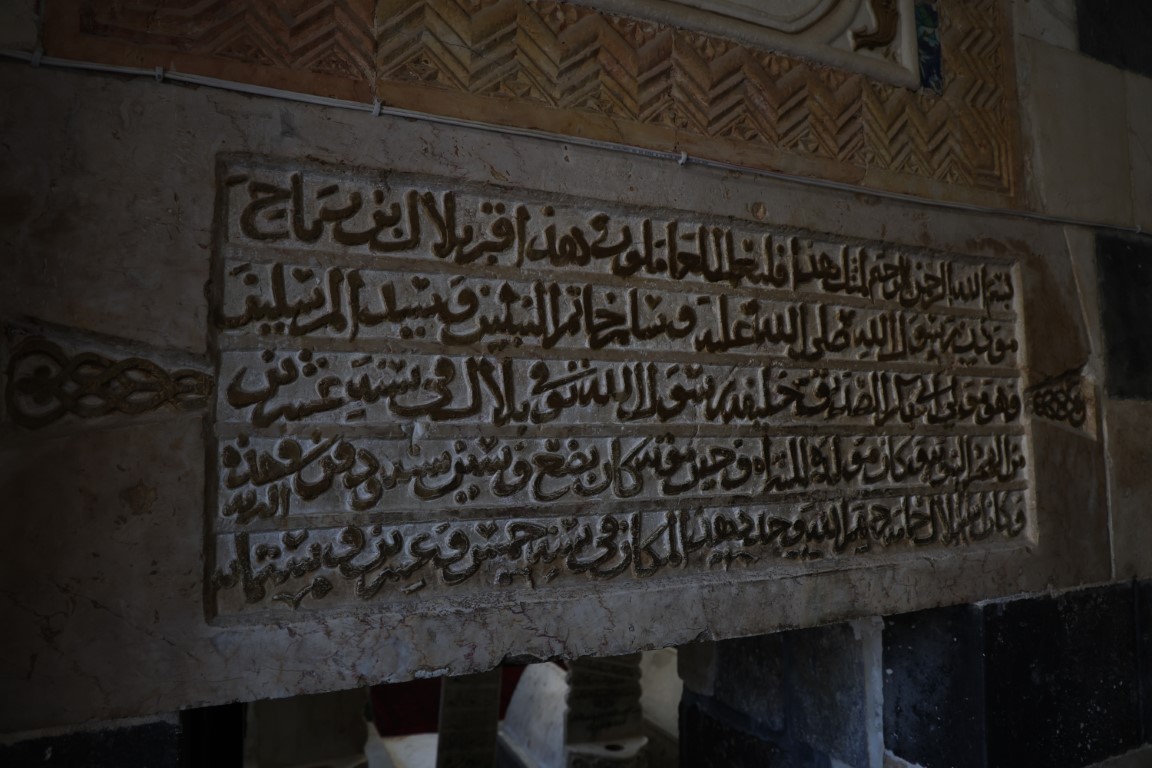 بسم الله الرحمن الرحيم لمثل هذا فليعمل العاملون هذا قبر بلال بن حمامة
مؤذن رسول الله صلى الله عليه وسلم خاتم النبيين وسيد المرسلين
وهو مولى ابي بكر الصديق خليفة رسول الله توفي بلال في سنة عشرين
من الهجرة النبوية وكان مولده السراة وحين موته كان بضع وستين سنة ودفن وهذه التربة
وكان بلال خادم رسول الله وجدد هذا المكان في سنة خمس وعشرين وستمائة